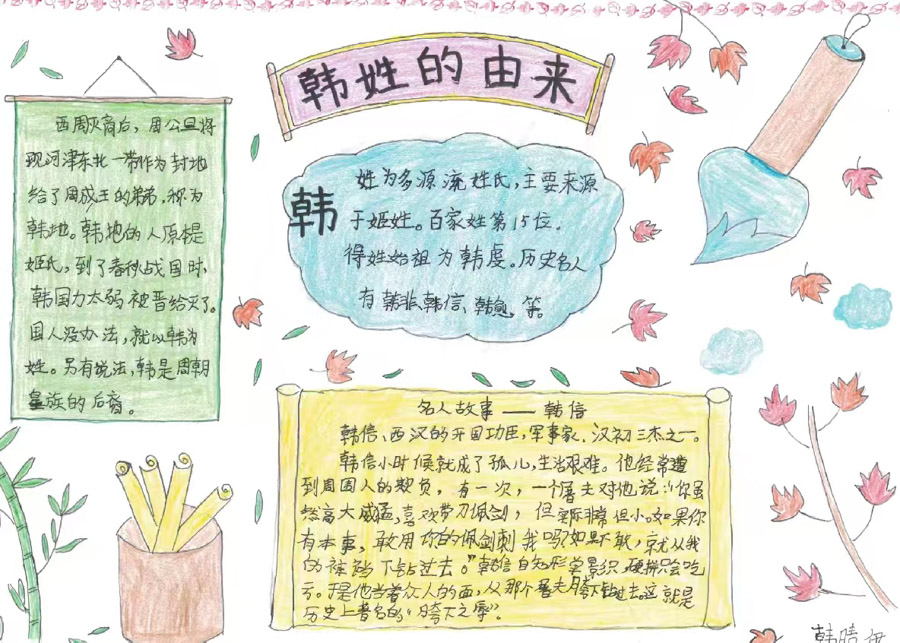 韩姓的由来
西周灭商后，周公旦将
现河津东北一带作为封地
给了周成王的弟弟，称为
韩地。韩地的人原是
姬氏，到了春秋战国时，
韩国力太弱被晋给灭了。
国人没办法，就以韩为
姓。另有说法，韩是周朝
皇族的后裔。
韩
姓为多源流姓氏，主要来源
于姬姓。百家姓第15位．
得姓始祖为韩虔。历史名人
有韩非、韩信、韩愈，等。
名人故事——韩信
韩信、西汉的开国功臣，军事家．汉初三杰之一。
韩信小时候就成了孤儿，生活艰难。他经常遭
到周围人的欺负，有一次，一个屠夫对他说：“你虽
然高大威猛，喜欢带刀佩剑，但实际非常胆小。如果你
有本事，敢用你的佩剑刺我吗？如果不敢，就从我
的裤裆下钻过去。”韩信自知形单影只，硬拼只会吃
亏。于是他当着众人的面，从那个屠夫胯下钻过去。这就是
历史上著名的“胯下之辱”
韩晴